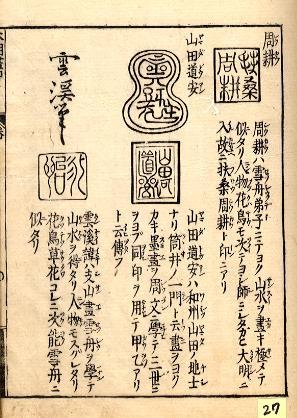 周耕
扶桑
周耕
周耕ハ雪舟弟子ニテヨク山水ヲ畫キ極メテ
似タリ人物花鳥モ次テヨシ師ニシタカヒ大明ニ
入故ニ扶桑周耕ト印ニアリ
山田道安
山田
道安
山田道安ハ和州山田ノ地士
ナリ筒井ノ一門ト云畫ヲヨク
カキ墨畫ヲ周文ヲ學テ二三世ニ
ヲヨフ同印ヲ用テ甲乙アリ
ト云傳フ
雲溪筆
雲溪諱ハ永山畫雪舟ヲ學テ
山水ヲ得タリ人物モスグレタリ
花鳥草花コレニ次能雪舟ニ
似タリ
27